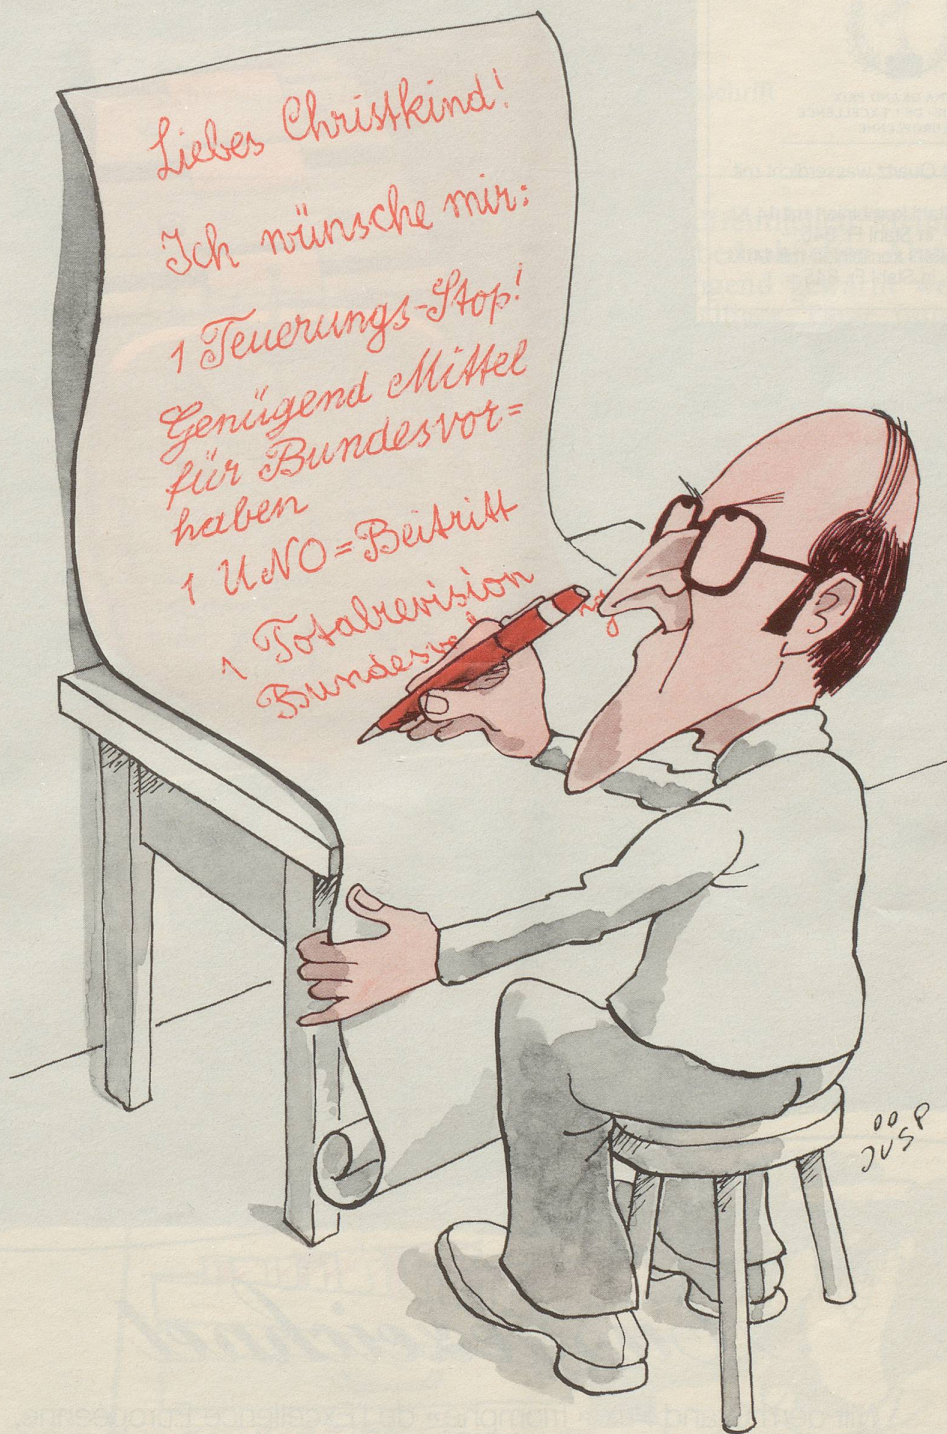 Liebes Christkind!
Ich wünsche mir:
1 Teuerungs-Stop!
Genügend Mittel
für Bundesvor=
haben
1 UNO=Beitritt
1 Totalrevision
JÜSP